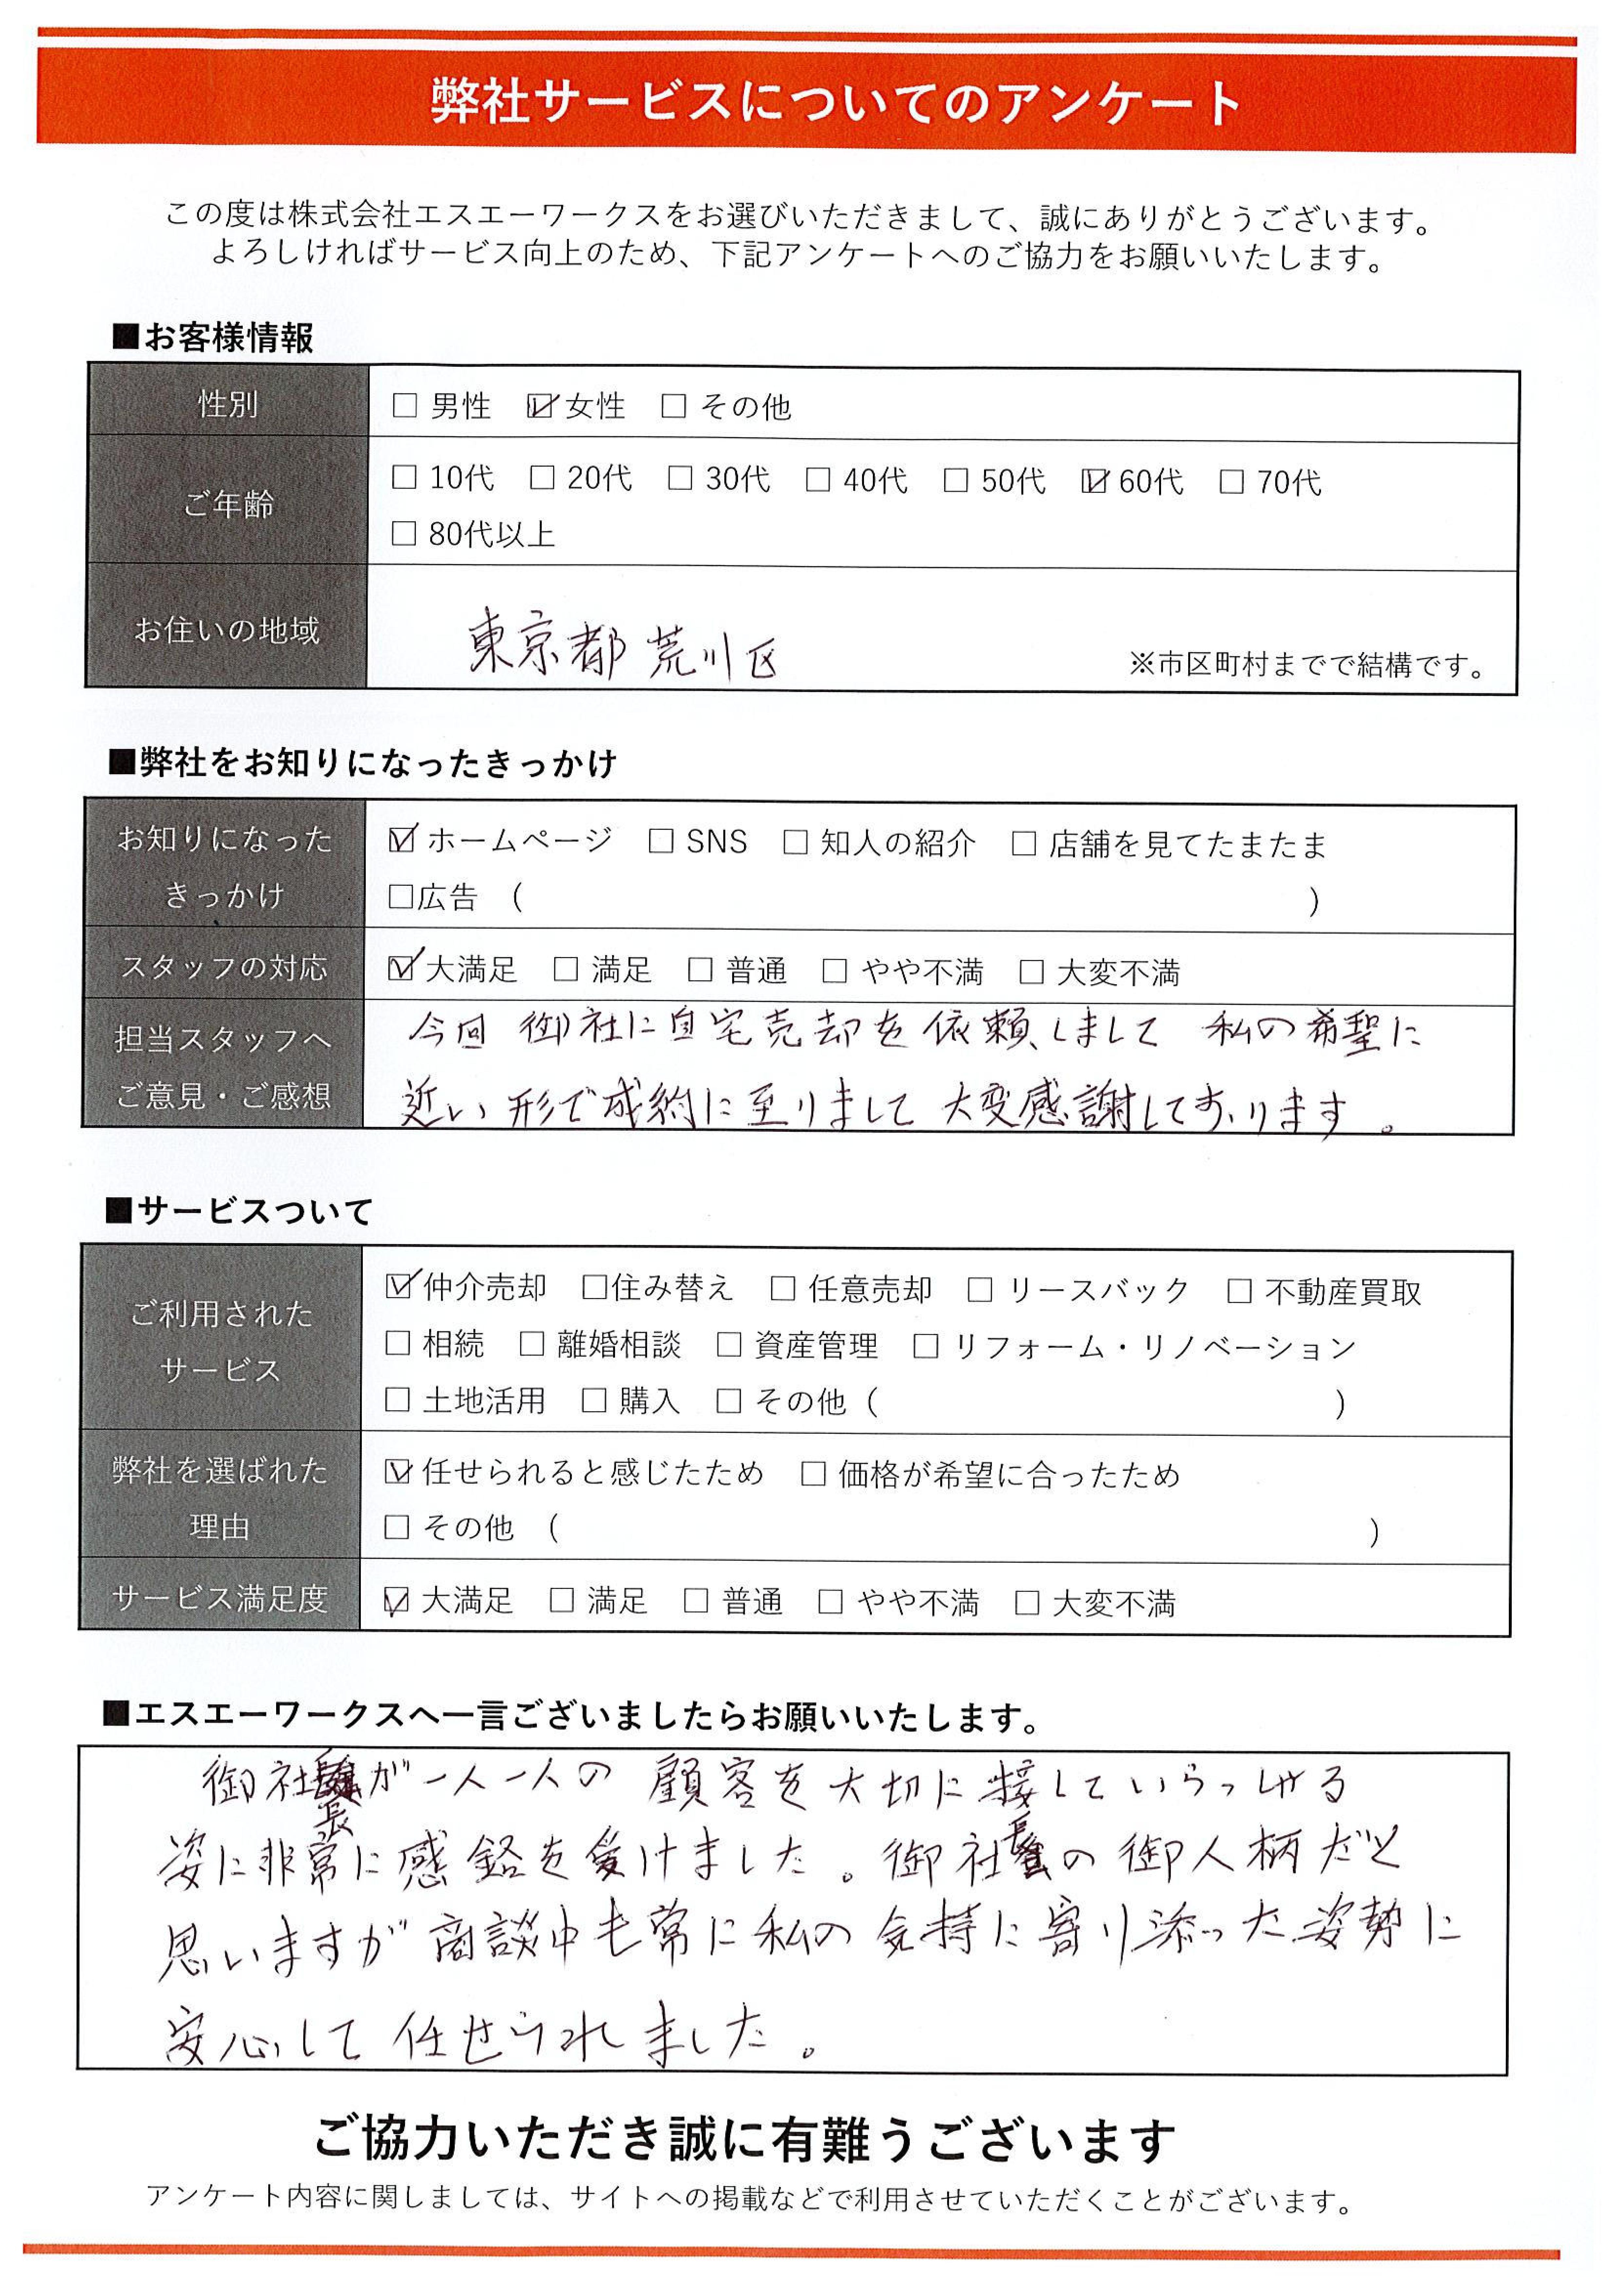 弊社サービスについてのアンケート
この度は株式会社エスエーワークスをお選びいただきまして、誠にありがとうございます。
よろしければサービス向上のため、下記アンケートへのご協力をお願いいたします。
■お客様情報
性別
□ 男性 ☑女性 □ その他
ご年齢
□ 10代 □ 20代 □ 30代 □ 40代 □ 50代 ☑ 60代 □ 70代
□ 80代以上
お住いの地域
東京都 荒川区
※市区町村までで結構です。
■弊社をお知りになったきっかけ
お知りになった
きっかけ
☑ ホームページ □ SNS □ 知人の紹介 □ 店舗を見てたまたま
□広告 ( )
スタッフの対応
☑大満足 □ 満足 □ 普通 □ やや不満 □ 大変不満
担当スタッフへ
ご意見・ご感想
今回 御社に自宅売却を依頼しまして 私の希望に
近い形で成約に至りまして 大変感謝しております。
■サービスついて
ご利用された
サービス
☑仲介売却 □住み替え □ 任意売却 □ リースバック □ 不動産買取
□ 相続 □ 離婚相談 □ 資産管理 □ リフォーム・リノベーション
□ 土地活用 □ 購入 □ その他 ( )
弊社を選ばれた
理由
☑ 任せられると感じたため □ 価格が希望に合ったため
□ その他 ( )
サービス満足度
☑ 大満足 □ 満足 □ 普通 □ やや不満 □ 大変不満
■エスエーワークスへ一言ございましたらお願いいたします。
御社長が一人一人の 顧客を大切に接していらっしゃる
姿に非常に感銘を受けました。御社長の御人柄だと
思いますが 商談中も常に私の気持に寄り添った姿勢に
安心して 任せられました。
ご協力いただき誠に有難うございます
アンケート内容に関しましては、サイトへの掲載などで利用させていただくことがございます。